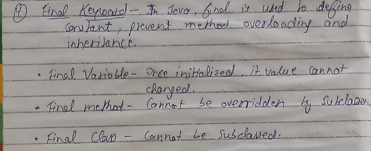 ④ Final Keyword - In Java, final is used to define
constant, prevent method overloading and
inheritance.
• Final Variable - once initialized, it value cannot
changed.
• Final method - Cannot be overridden by subclass
• Final Class - Cannot be subclassed.